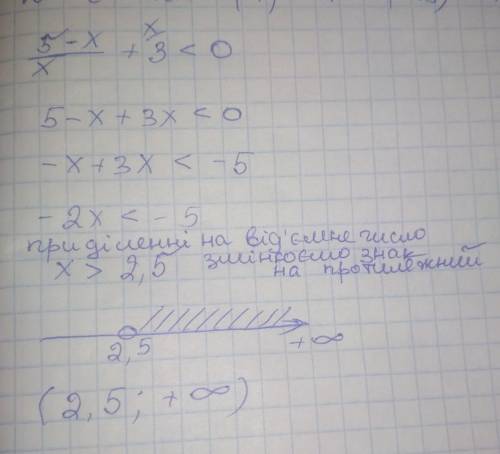 (5-x)/x + 3 (x) < 0
5-x+3x<0
-x+3x < -5
-2x < -5
при діленні на від'ємне число
x > 2,5 змінюємо знак
на протилежний
2,5 +∞
(2,5; +∞)